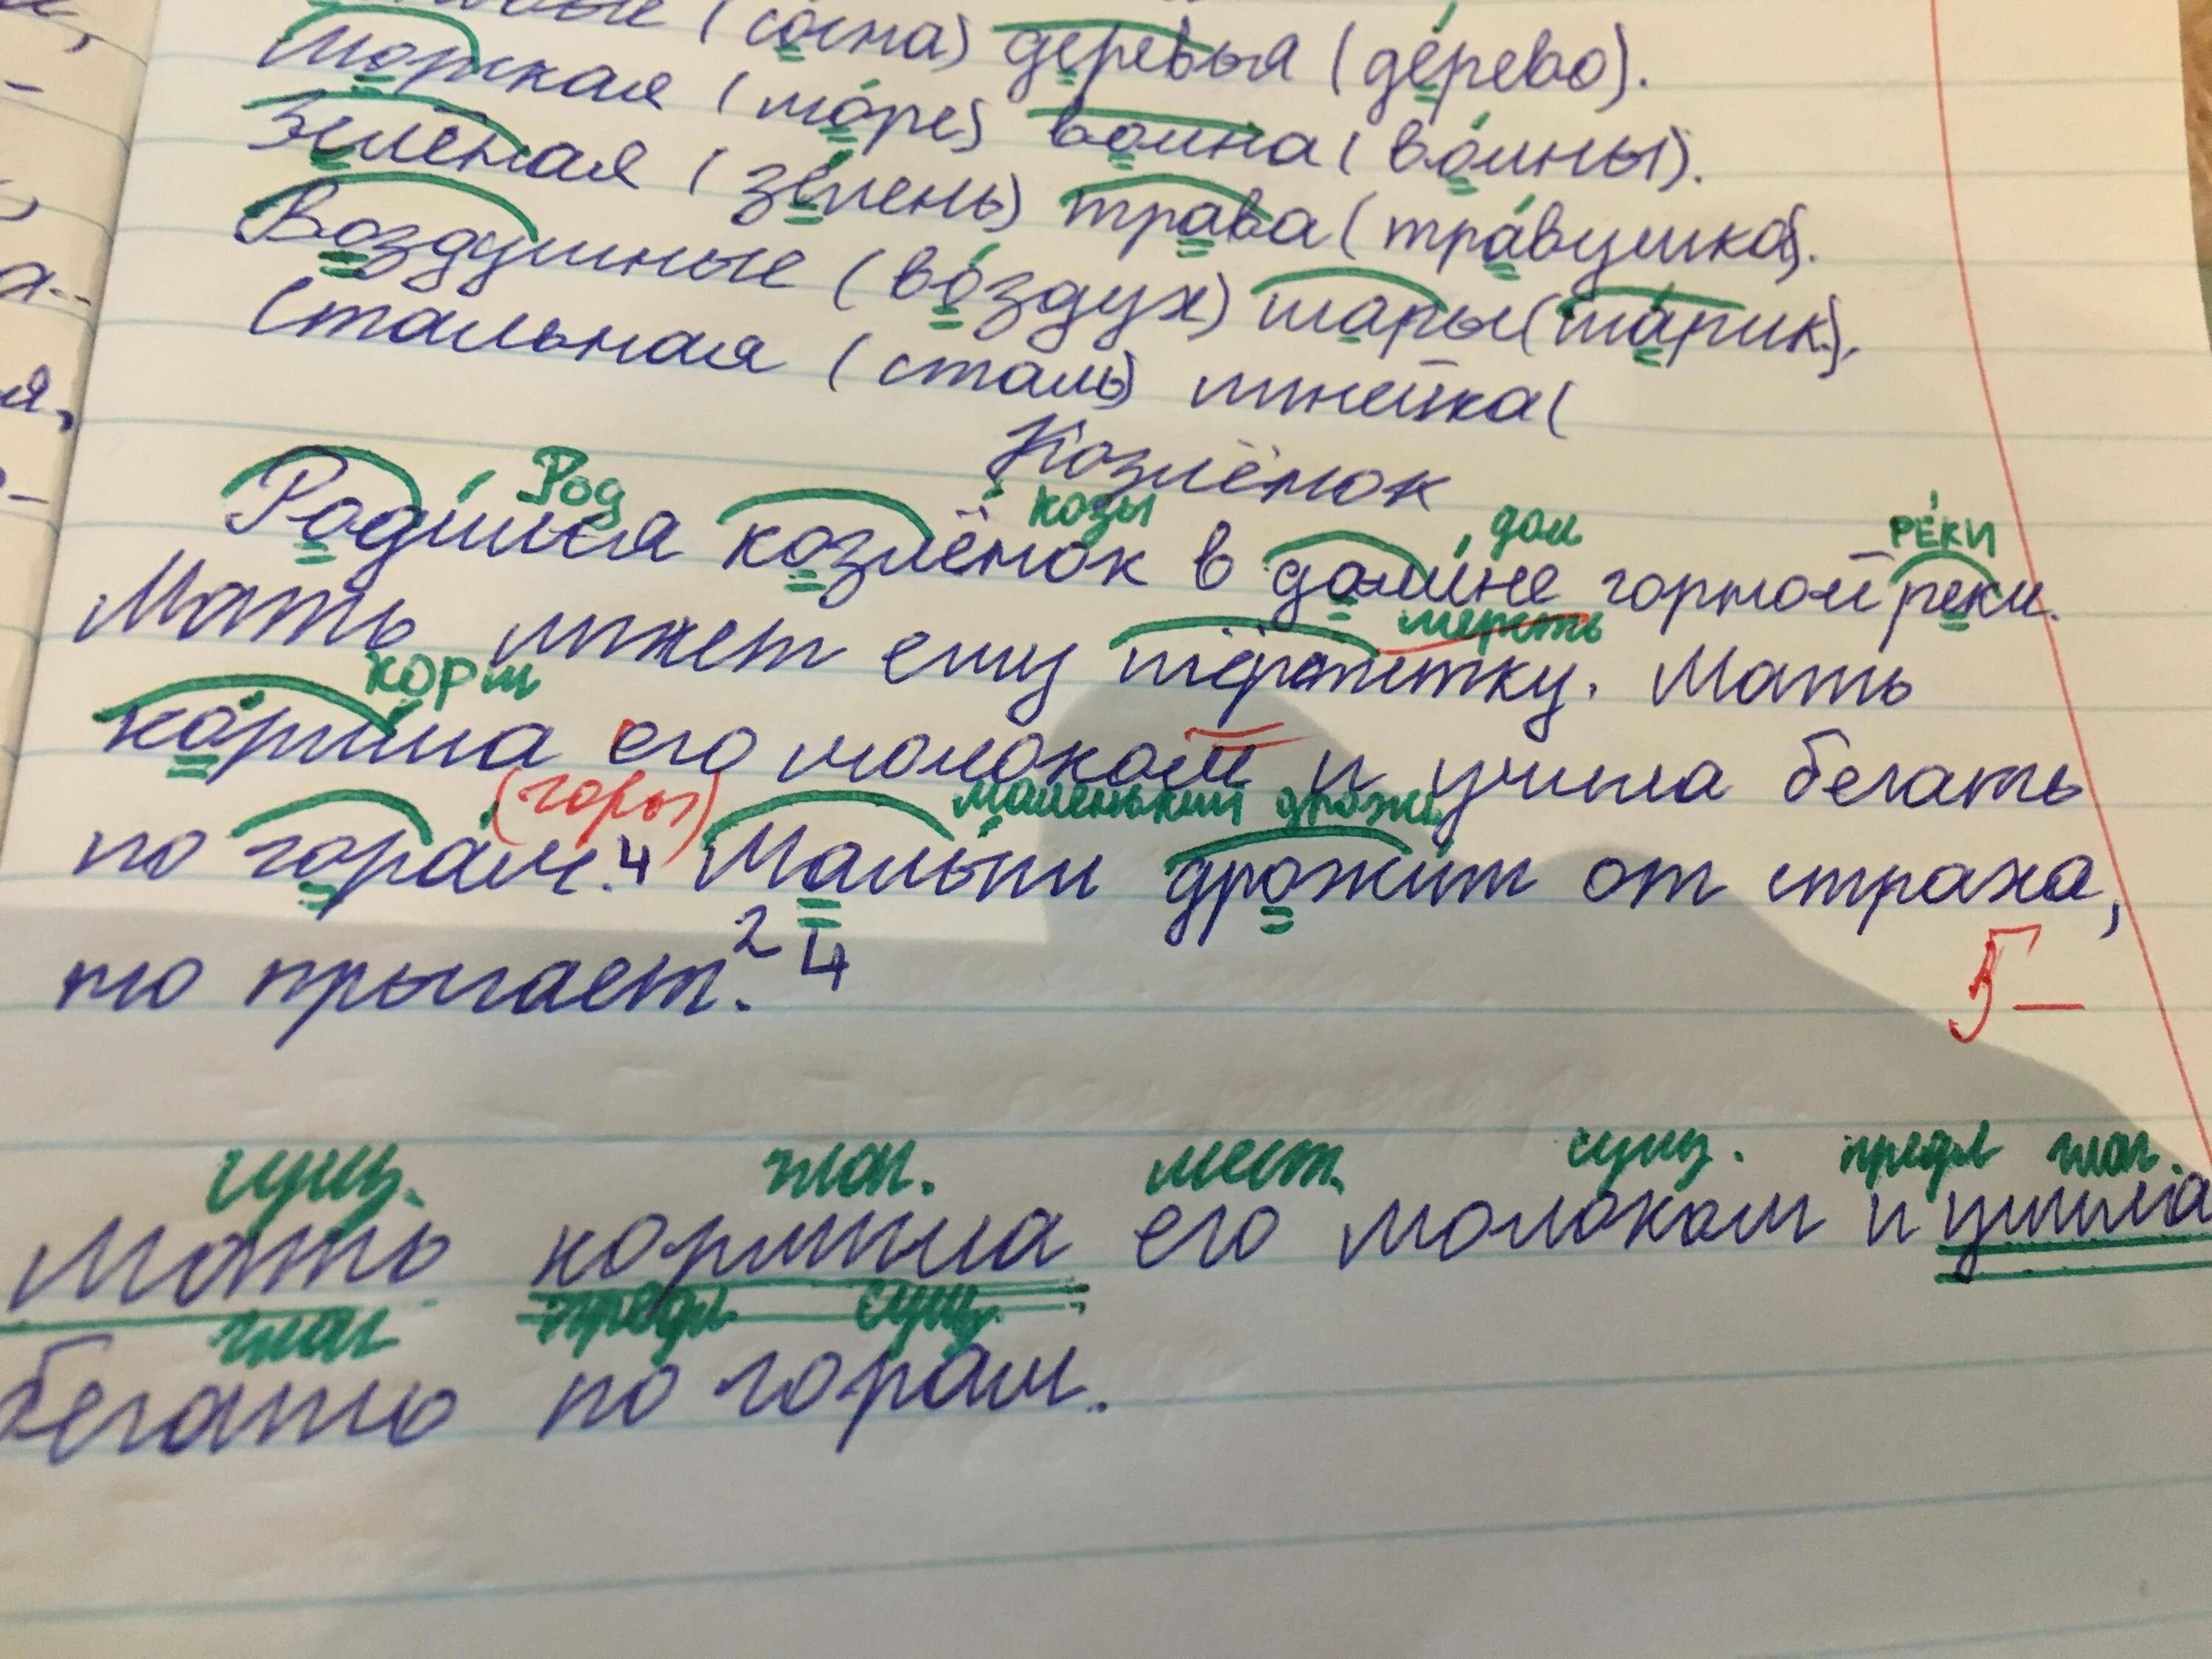 (сосна) деревья (дерево).
Морская (море) волна (волны).
Зелёная (зелень) трава (травушка).
Воздушные (воздух) шары (шарик).
Стальная (сталь) линейка (
Козлёнок
Род козы дол РЕКИ
Родился козлёнок в долине горной реки.
шерсть
Мать лижет ему шёрстку. Мать
корм
кормила его молоком и учила бегать
(горы) маленький дрожь
по горам.4 Малыш дрожит от страха,
но прыгает.² 4
5-
сущ. глаг. мест. сущ. предл глаг.
Мать кормила его молоком и учила
глаг предл сущ.
бегать по горам.